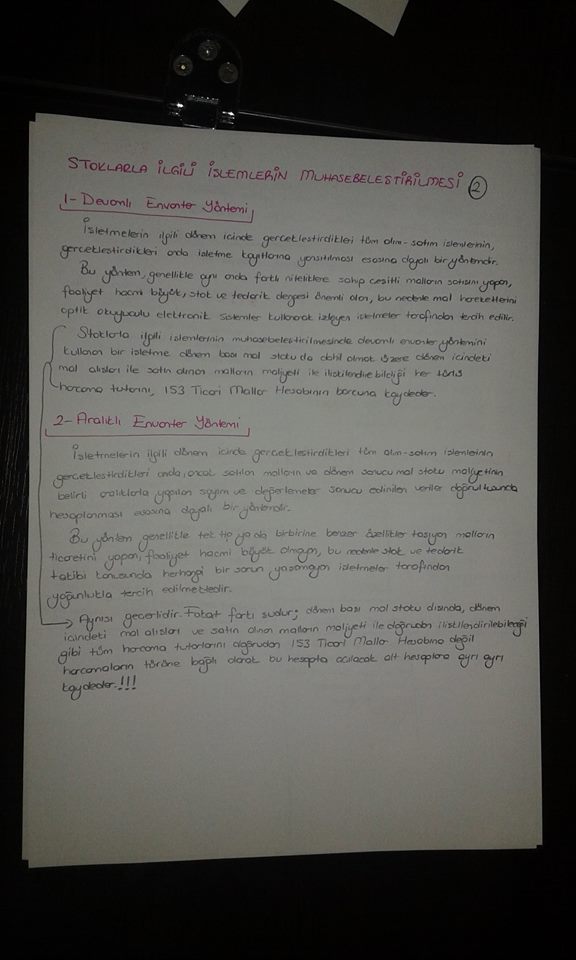 STOKLARLA İLGİLİ İŞLEMLERİN MUHASEBELEŞTİRİLMESİ 2
1- Devamlı Envanter Yöntemi
İşletmelerin ilgili dönem içinde gerçekleştirdikleri tüm alım-satım işlemlerinin,
gerçekleştirdikleri anda işletme kayıtlarına yansıtılması esasına dayalı bir yöntemdir.
Bu yöntem, genellikle aynı anda farklı niteliklere sahip çeşitli malların satışını yapan,
faaliyet hacmi büyük, stok ve tedarik dengesi önemli olan, bu nedenle mal hareketlerini
optik okuyuculu elektronik sistemler kullanarak izleyen işletmeler tarafından tercih edilir.
Stoklarla ilgili işlemlerinin muhasebeleştirilmesinde devamlı envanter yöntemini
kullanan bir işletme dönem başı mal stoku da dahil olmak üzere dönem içindeki
mal alışları ile satın alınan malların maliyeti ile ilişkilendirebildiği her türlü
harcama tutarını, 153 Ticari Mallar Hesabının borcuna kaydeder.
2- Aralıklı Envanter Yöntemi
İşletmelerin ilgili dönem içinde gerçekleştirdikleri tüm alım-satım işlemlerinin
gerçekleştirdikleri anda, ancak satılan malların ve dönem sonucu mal stoku maliyetinin
belirli aralıklarla yapılan sayım ve değerlemeler sonucu edinilen veriler doğrultusunda
hesaplanması esasına dayalı bir yöntemdir.
Bu yöntem genellikle tek tip ya da birbirine benzer özellikler taşıyan malların
ticaretini yapan, faaliyet hacmi büyük olmayan, bu nedenle stok ve tedarik
takibi konusunda herhangi bir sorun yaşamayan işletmeler tarafından
yoğunlukla tercih edilmektedir.
→ Aynısı geçerlidir. Fakat farkı şudur; dönem başı mal stoku dışında, dönem
içindeki mal alışları ve satın alınan malların maliyeti ile doğrudan ilişkilendirilebileceği
gibi tüm harcama tutarlarını doğrudan 153 Ticari Mallar Hesabına değil
harcamaların türüne bağlı olarak bu hesapta açılacak alt hesaplara ayrı ayrı
kaydeder.!!!